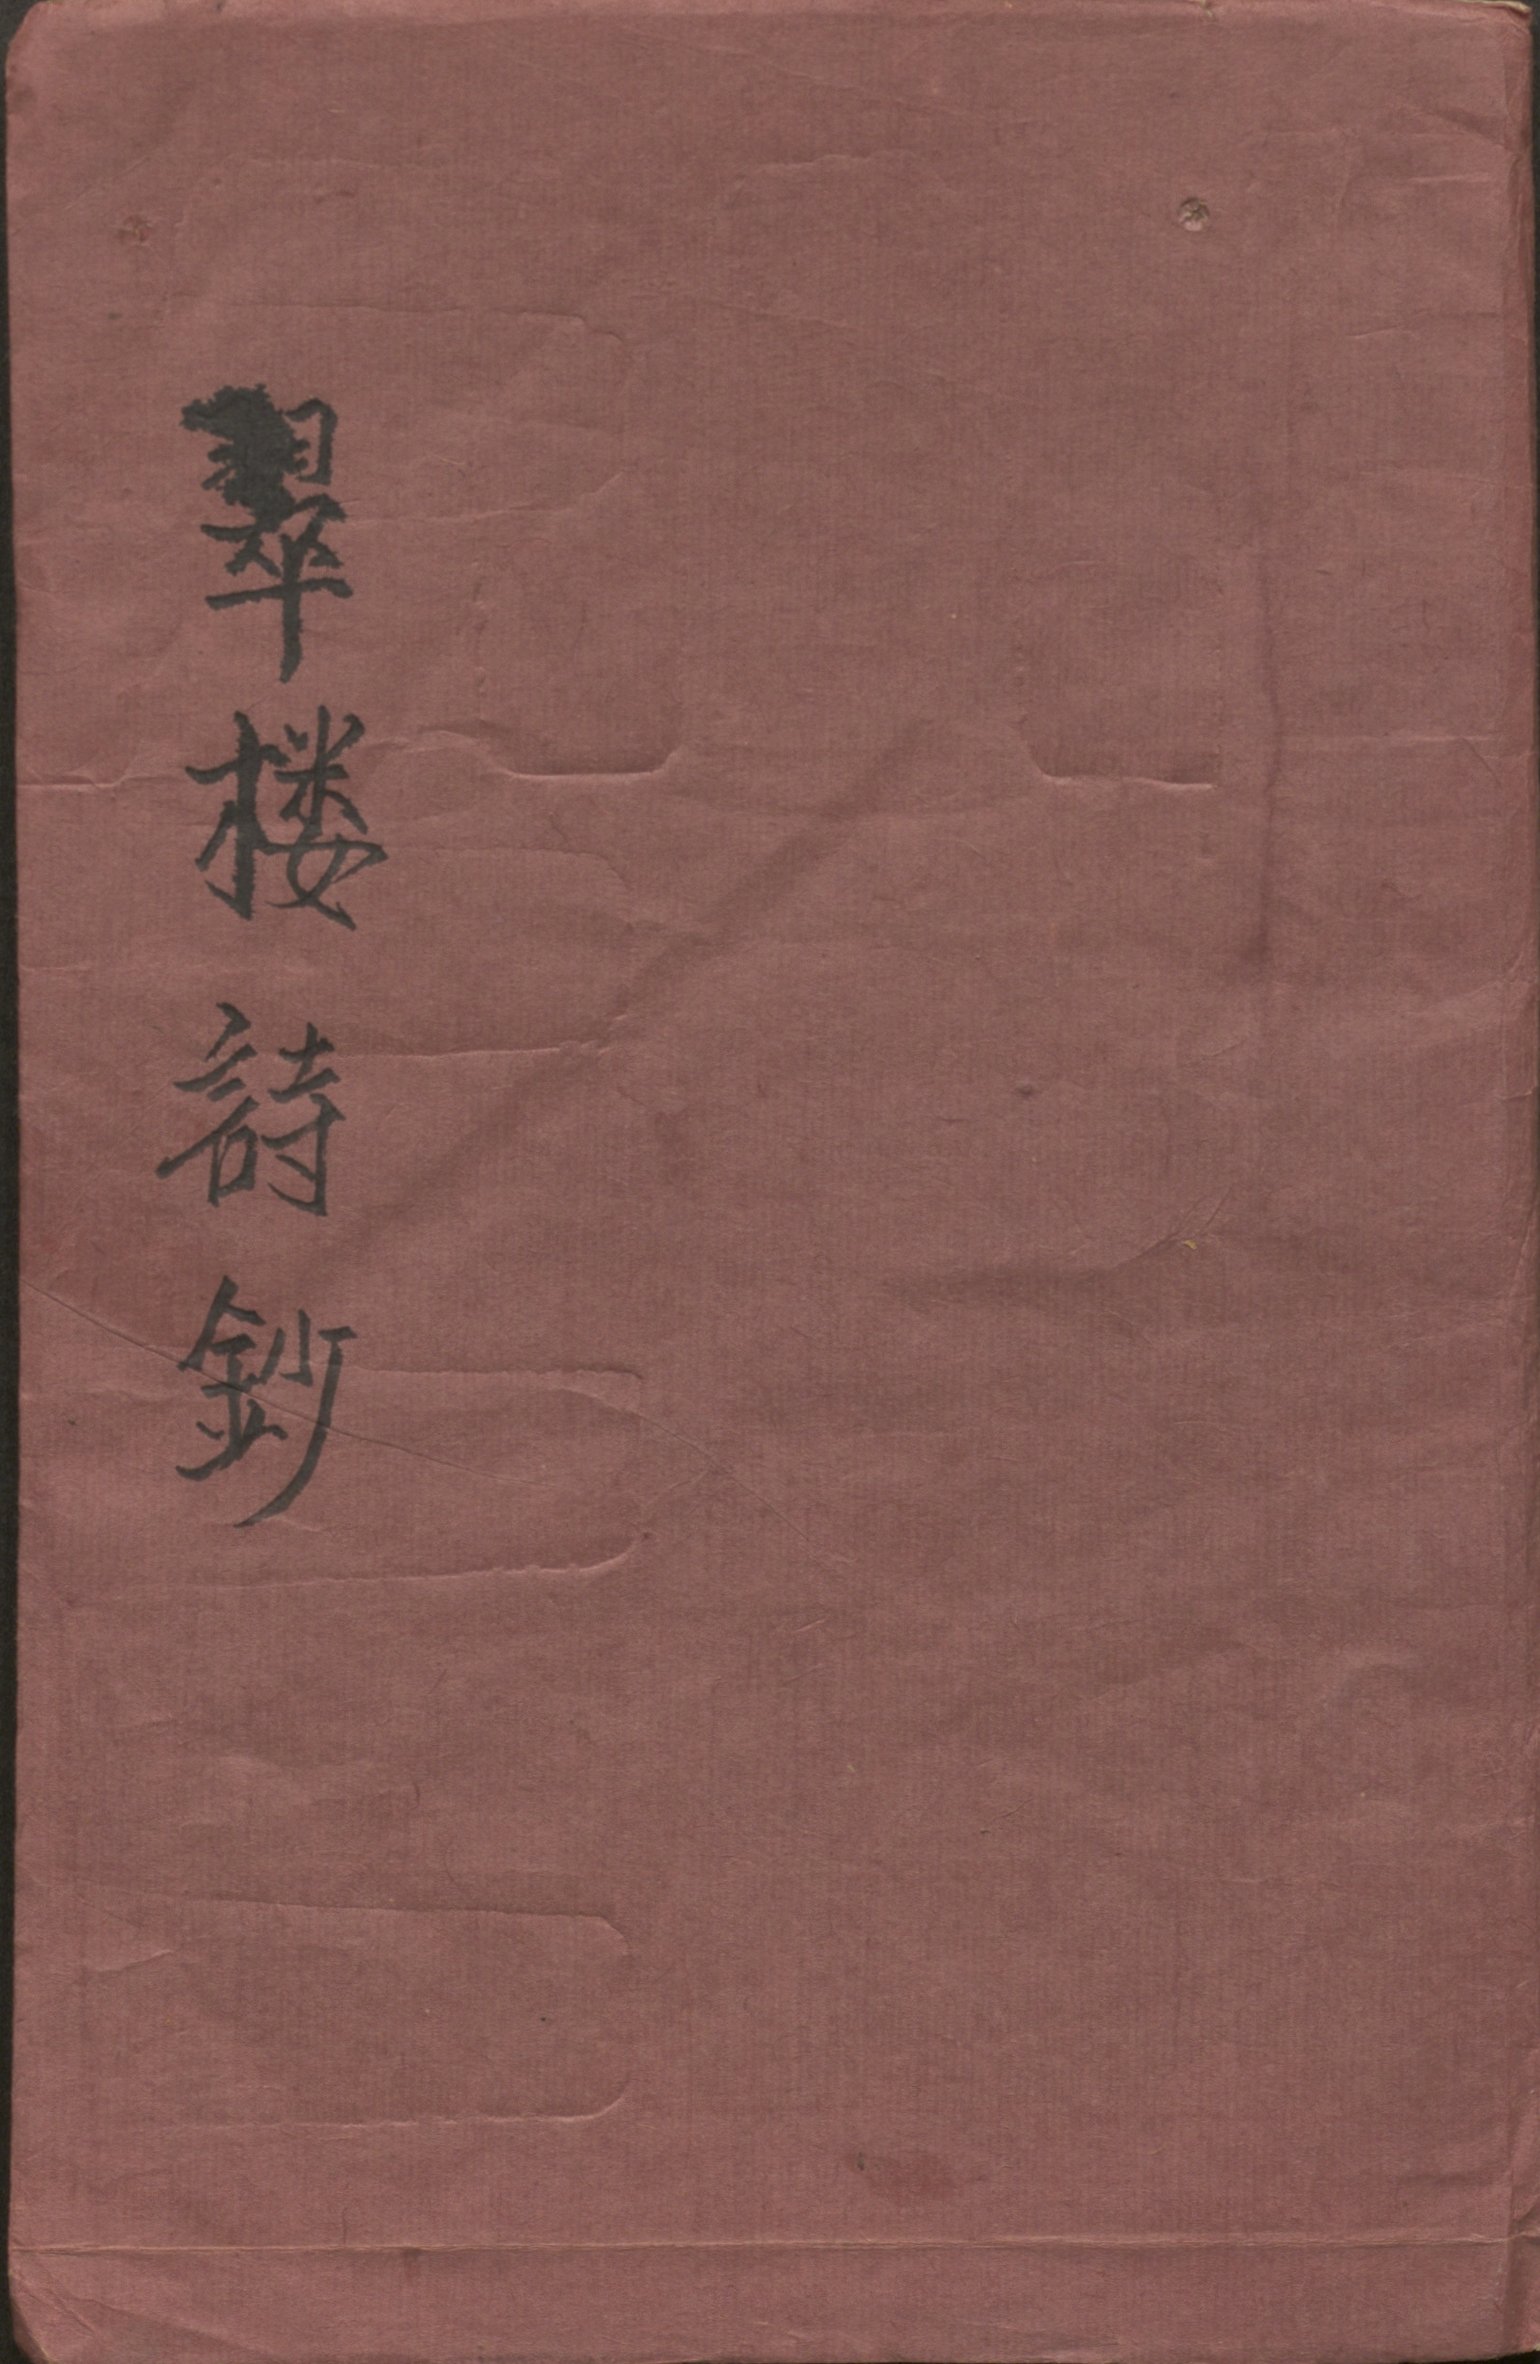 翠楼詩鈔